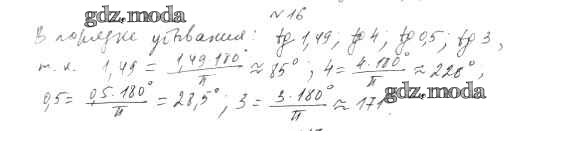 gdz.moda
№ 16
В порядке убывания: tg 1,49; tg 4; tg 0,5; tg 3,
т. к. 1,49 = 1,49·180°/π ≈ 85°; 4 = 4·180°/π ≈ 228°;
0,5 = 0,5·180°/π = 28,5°; 3 = 3·180°/π ≈ 171°
gdz.moda